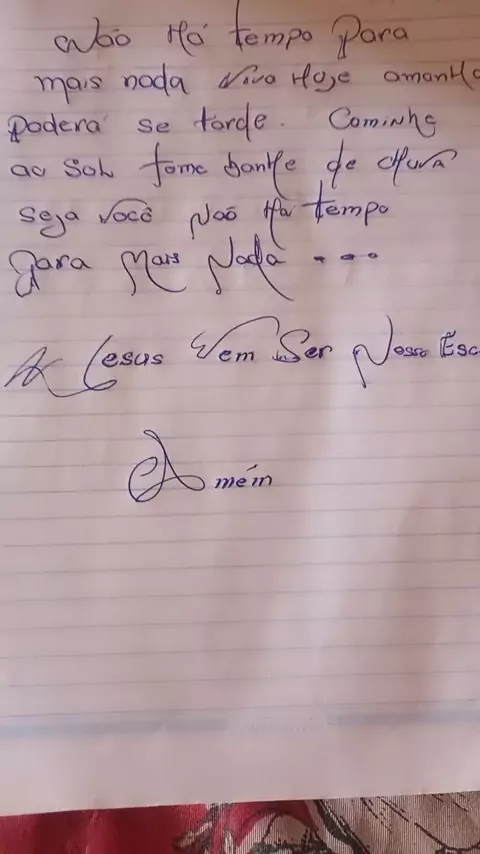 Não Há tempo Para
mais nada Viva Hoje amanhã
Poderá se tarde. Caminhe
ao Sol tome banhe de chuva
seja você Não Há tempo
Para Mais Nada ...
Jesus Vem Ser Nosso Esc
Amém